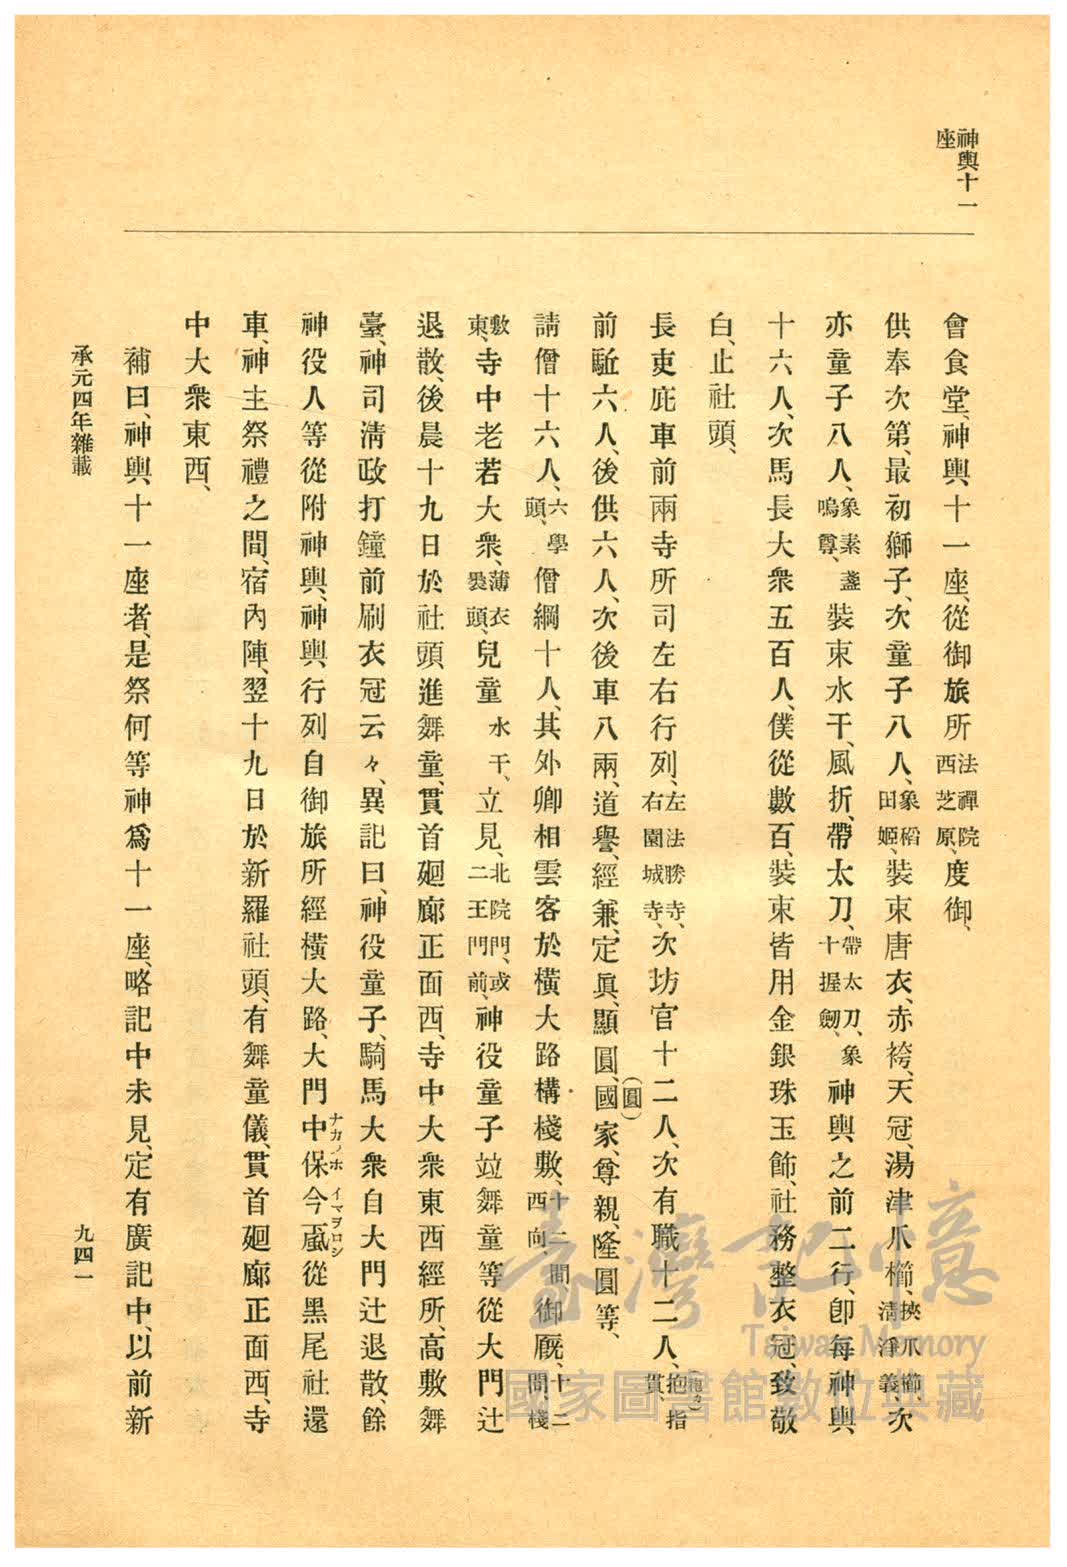 神輿十一
座
會食堂、神輿十一座、從御旅所法禪院西芝原、度御、
供奉次第、最初獅子、次童子八人、象稻田姬、裝束唐衣、赤袴、天冠、湯津爪櫛、挾爪櫛、淸淨義、次
亦童子八人、象素盞嗚尊、裝束水干、風折、帶太刀、帶太刀、象十握劔、神輿之前二行、卽每神輿
十六人、次馬長大衆五百人、僕從數百、裝束皆用金銀珠玉飾、社務整衣冠、致敬
白、止社頭、
長吏庇車前兩寺所司左右行列、左法勝寺、右園城寺、次坊官十二人、次有職十二人、抱指貫、
前駈六人、後供六人、次後車八兩、道譽、經兼、定眞、顯圓、國(圓)家、尊親、隆圓等、
請僧十六人、六學頭、僧綱十人、其外卿相雲客於橫大路構棧敷、十二間西向、御厩、十二間棧
敷東、寺中老若大衆、薄衣裂頭、兒童水干、立見、北院門、或二王門前、神役童子竝舞童等從大門辻
退散、後晨十九日於社頭進舞童、貫首廻廊正面西、寺中大衆東西經所、高敷舞
臺、神司淸政打鐘前刷衣冠云々、異記曰、神役童子、騎馬大衆自大門辻退散、餘
神役人等從附神輿、神輿行列自御旅所經橫大路、大門中保ナカノホ今颪イマヲロシ從黑尾社還
車、神主祭禮之間、宿內陣、翌十九日於新羅社頭、有舞童儀、貫首廻廊正面西、寺
中大衆東西、
補曰、神輿十一座者、是祭何等神爲十一座、略記中未見、定有廣記中、以前新
承元四年雜載
九四一
臺灣記憶
Taiwan Memory
國家圖書館數位典藏